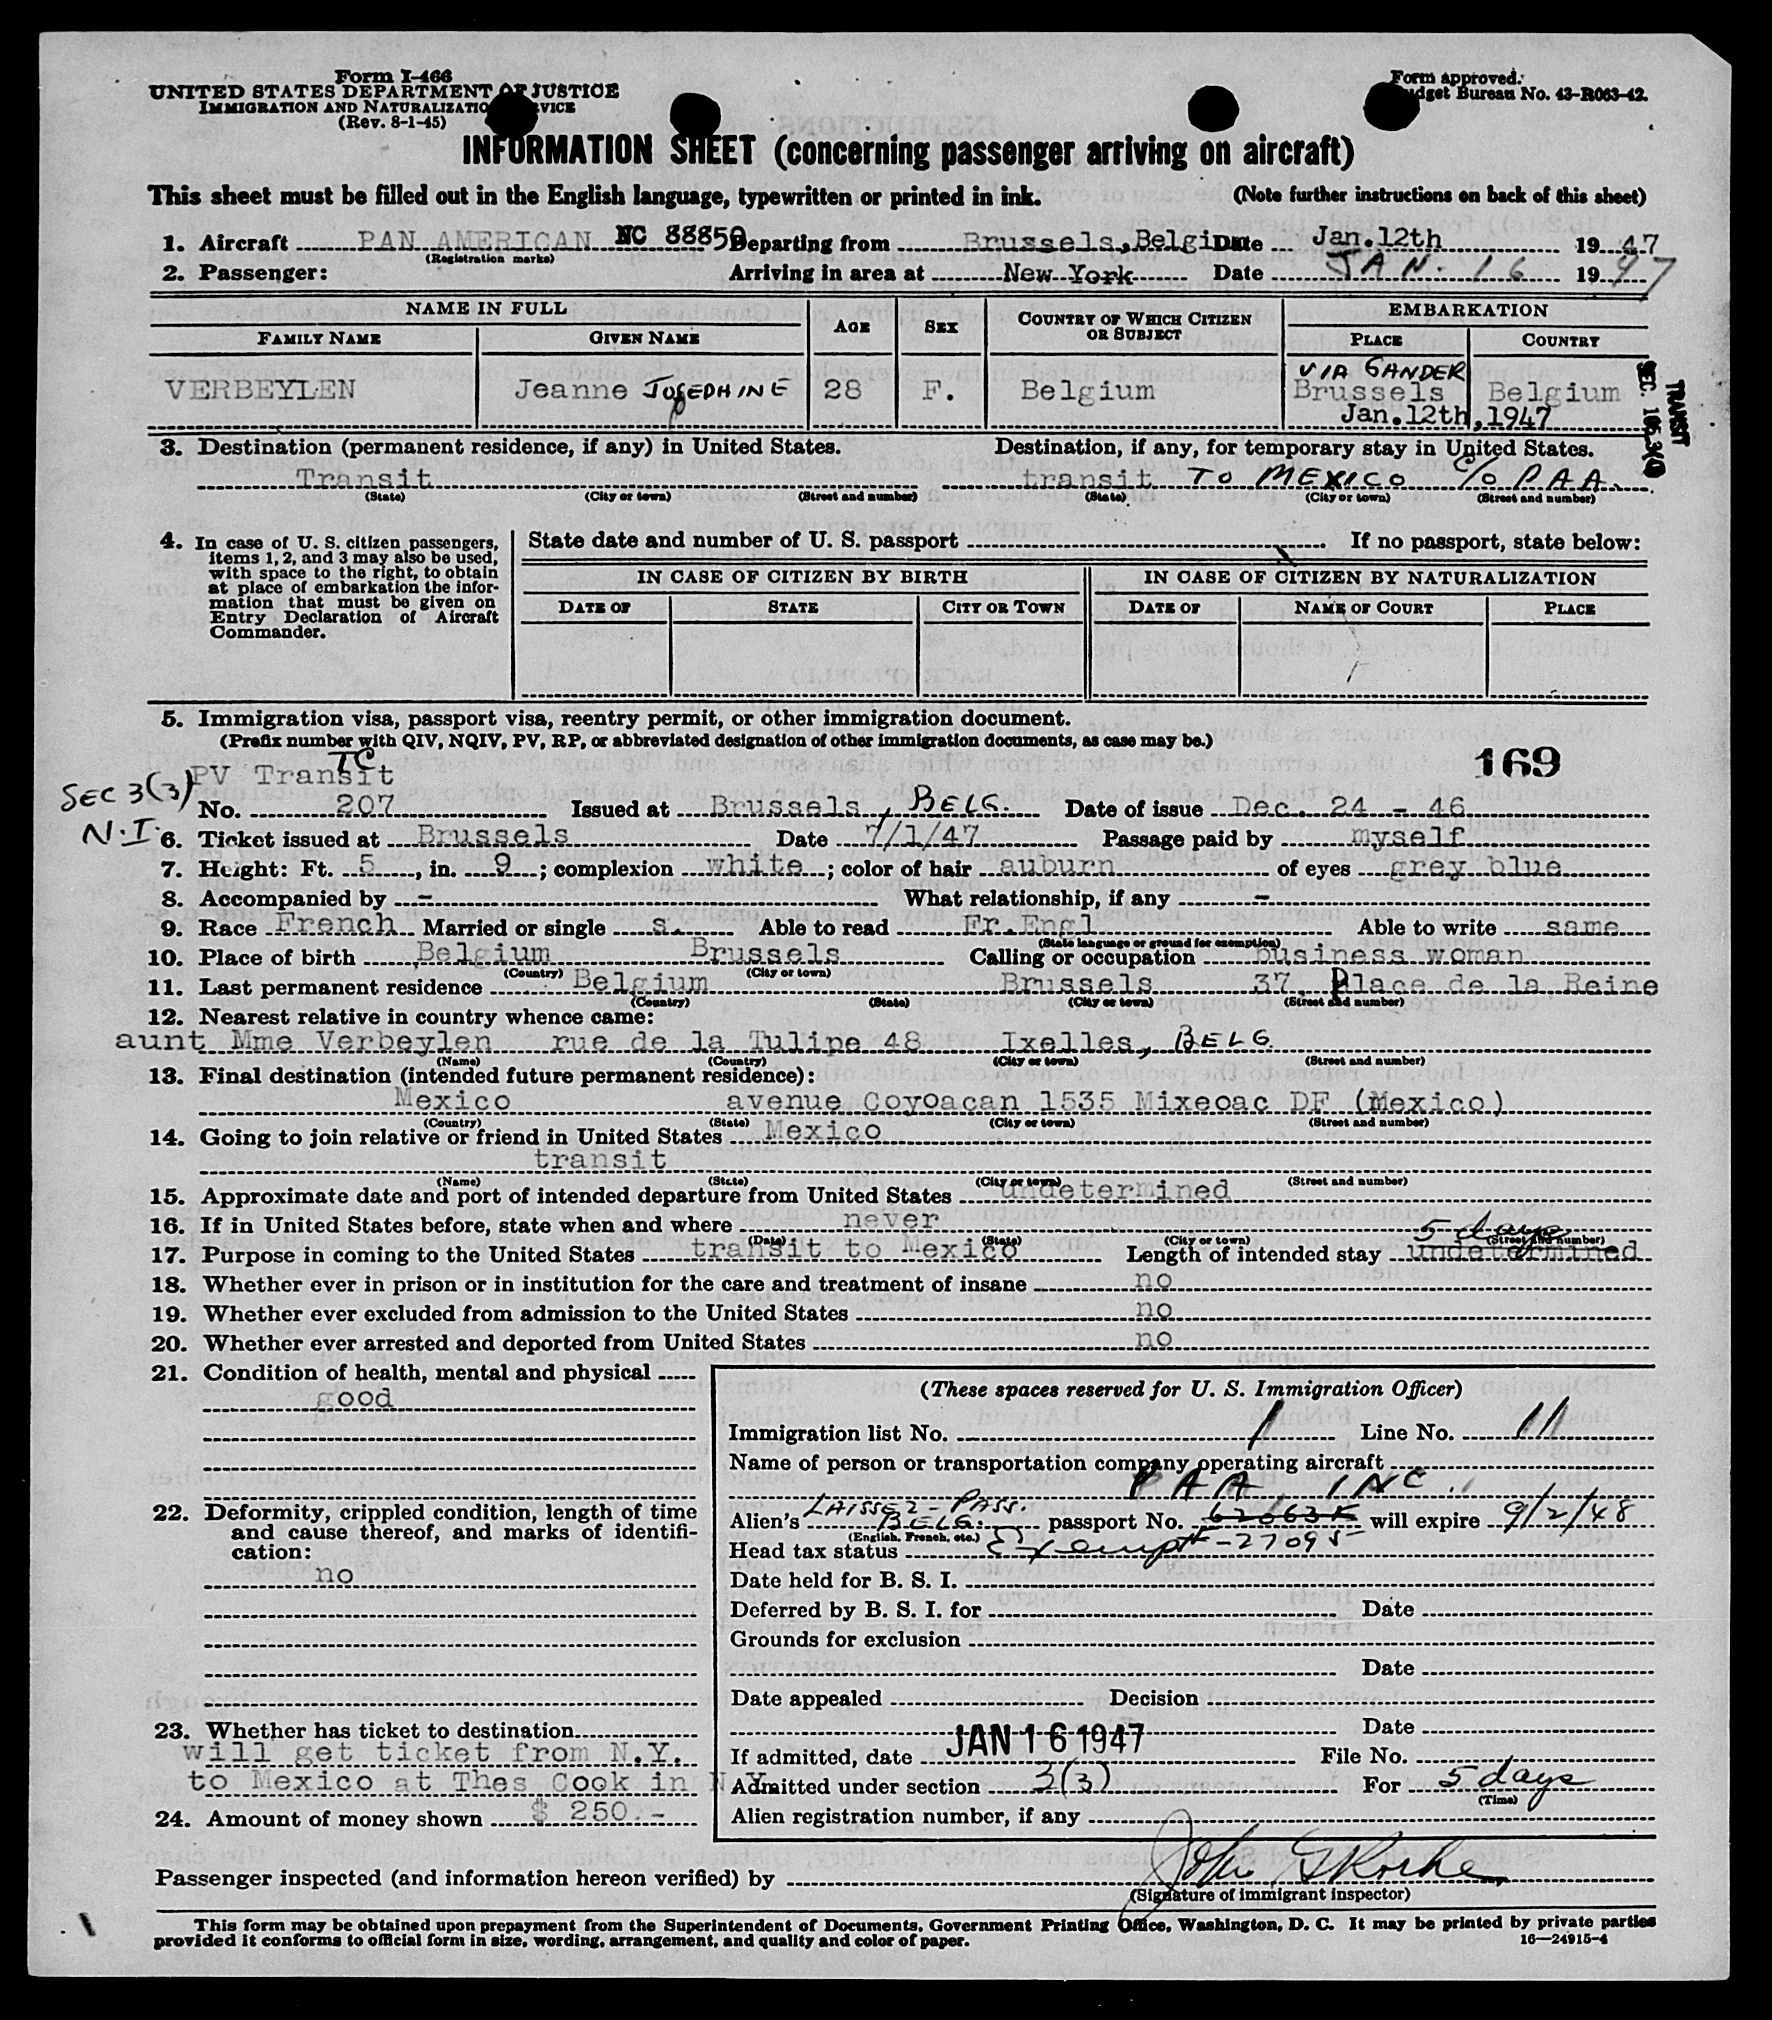 Form I-466
UNITED STATES DEPARTMENT OF JUSTICE
IMMIGRATION AND NATURALIZATION SERVICE
(Rev. 8-1-45)
Form approved.
Budget Bureau No. 43-R063-42.
INFORMATION SHEET (concerning passenger arriving on aircraft)
This sheet must be filled out in the English language, typewritten or printed in ink. (Note further instructions on back of this sheet)
1. Aircraft PAN AMERICAN NC 88850 Departing from Brussels, Belgium Date Jan.12th 1947
(Registration marks)
2. Passenger: Arriving in area at New York Date JAN. 16 1947
NAME IN FULL AGE SEX COUNTRY OF WHICH CITIZEN OR SUBJECT EMBARKATION
FAMILY NAME GIVEN NAME PLACE COUNTRY
VIA GANDER
VERBEYLEN Jeanne JOSEPHINE 28 F. Belgium Brussels Belgium
Jan.12th,1947
TRANSIT
SEC. 165.3(a)
3. Destination (permanent residence, if any) in United States. Destination, if any, for temporary stay in United States.
Transit transit TO MEXICO C/O PAA.
(State) (City or town) (Street and number) (State) (City or town) (Street and number)
4. In case of U. S. citizen passengers, items 1, 2, and 3 may also be used, with space to the right, to obtain at place of embarkation the information that must be given on Entry Declaration of Aircraft Commander.
State date and number of U. S. passport If no passport, state below:
IN CASE OF CITIZEN BY BIRTH IN CASE OF CITIZEN BY NATURALIZATION
DATE OF STATE CITY OR TOWN DATE OF NAME OF COURT PLACE
5. Immigration visa, passport visa, reentry permit, or other immigration document.
(Prefix number with QIV, NQIV, PV, RP, or abbreviated designation of other immigration documents, as case may be.)
169
TC
SEC 3(3) PV Transit
No. 207 Issued at Brussels, BELG. Date of issue Dec. 24 - 46
N.I.
6. Ticket issued at Brussels Date 7/1/47 Passage paid by myself
7. Height: Ft. 5, in. 9; complexion white; color of hair auburn of eyes grey blue
8. Accompanied by - What relationship, if any -
9. Race French Married or single s. Able to read Fr.Engl Able to write same
(State language or ground for exemption)
10. Place of birth Belgium Brussels Calling or occupation business woman
(Country) (City or town)
11. Last permanent residence Belgium Brussels 37, Place de la Reine
(Country) (State) (City or town) (Street and number)
12. Nearest relative in country whence came:
aunt Mme Verbeylen rue de la Tulipe 48 Ixelles, BELG.
(Name) (Country) (City or town) (Street and number)
13. Final destination (intended future permanent residence):
Mexico avenue Coyoacan 1535 Mixeoac DF (Mexico)
(Country) (State) (City or town) (Street and number)
14. Going to join relative or friend in United States Mexico
transit
(Name) (State) (City or town) (Street and number)
15. Approximate date and port of intended departure from United States undetermined
16. If in United States before, state when and where never
(Date) (State) (City or town) (Street and number)
5 days
17. Purpose in coming to the United States transit to Mexico Length of intended stay undetermined
18. Whether ever in prison or in institution for the care and treatment of insane no
19. Whether ever excluded from admission to the United States no
20. Whether ever arrested and deported from United States no
21. Condition of health, mental and physical
good
22. Deformity, crippled condition, length of time and cause thereof, and marks of identification:
no
23. Whether has ticket to destination
will get ticket from N.Y.
to Mexico at Thes Cook in N.Y.
24. Amount of money shown $ 250.-
(These spaces reserved for U. S. Immigration Officer)
Immigration list No. 1 Line No. 11
Name of person or transportation company operating aircraft
PAA INC.
LAISSEZ-PASS.
Alien's BELG. passport No. 62663K will expire 9/2/48
(English, French, etc.)
Head tax status Exempt - 27095
Date held for B. S. I.
Deferred by B. S. I. for Date
Grounds for exclusion
Date
Date appealed Decision
Date
If admitted, date JAN 16 1947 File No.
Admitted under section 3(3) For 5 days
(Time)
Alien registration number, if any
Passenger inspected (and information hereon verified) by John
(Signature of immigrant inspector)
This form may be obtained upon prepayment from the Superintendent of Documents, Government Printing Office, Washington, D. C. It may be printed by private parties
provided it conforms to official form in size, wording, arrangement, and quality and color of paper.
16—24915-4